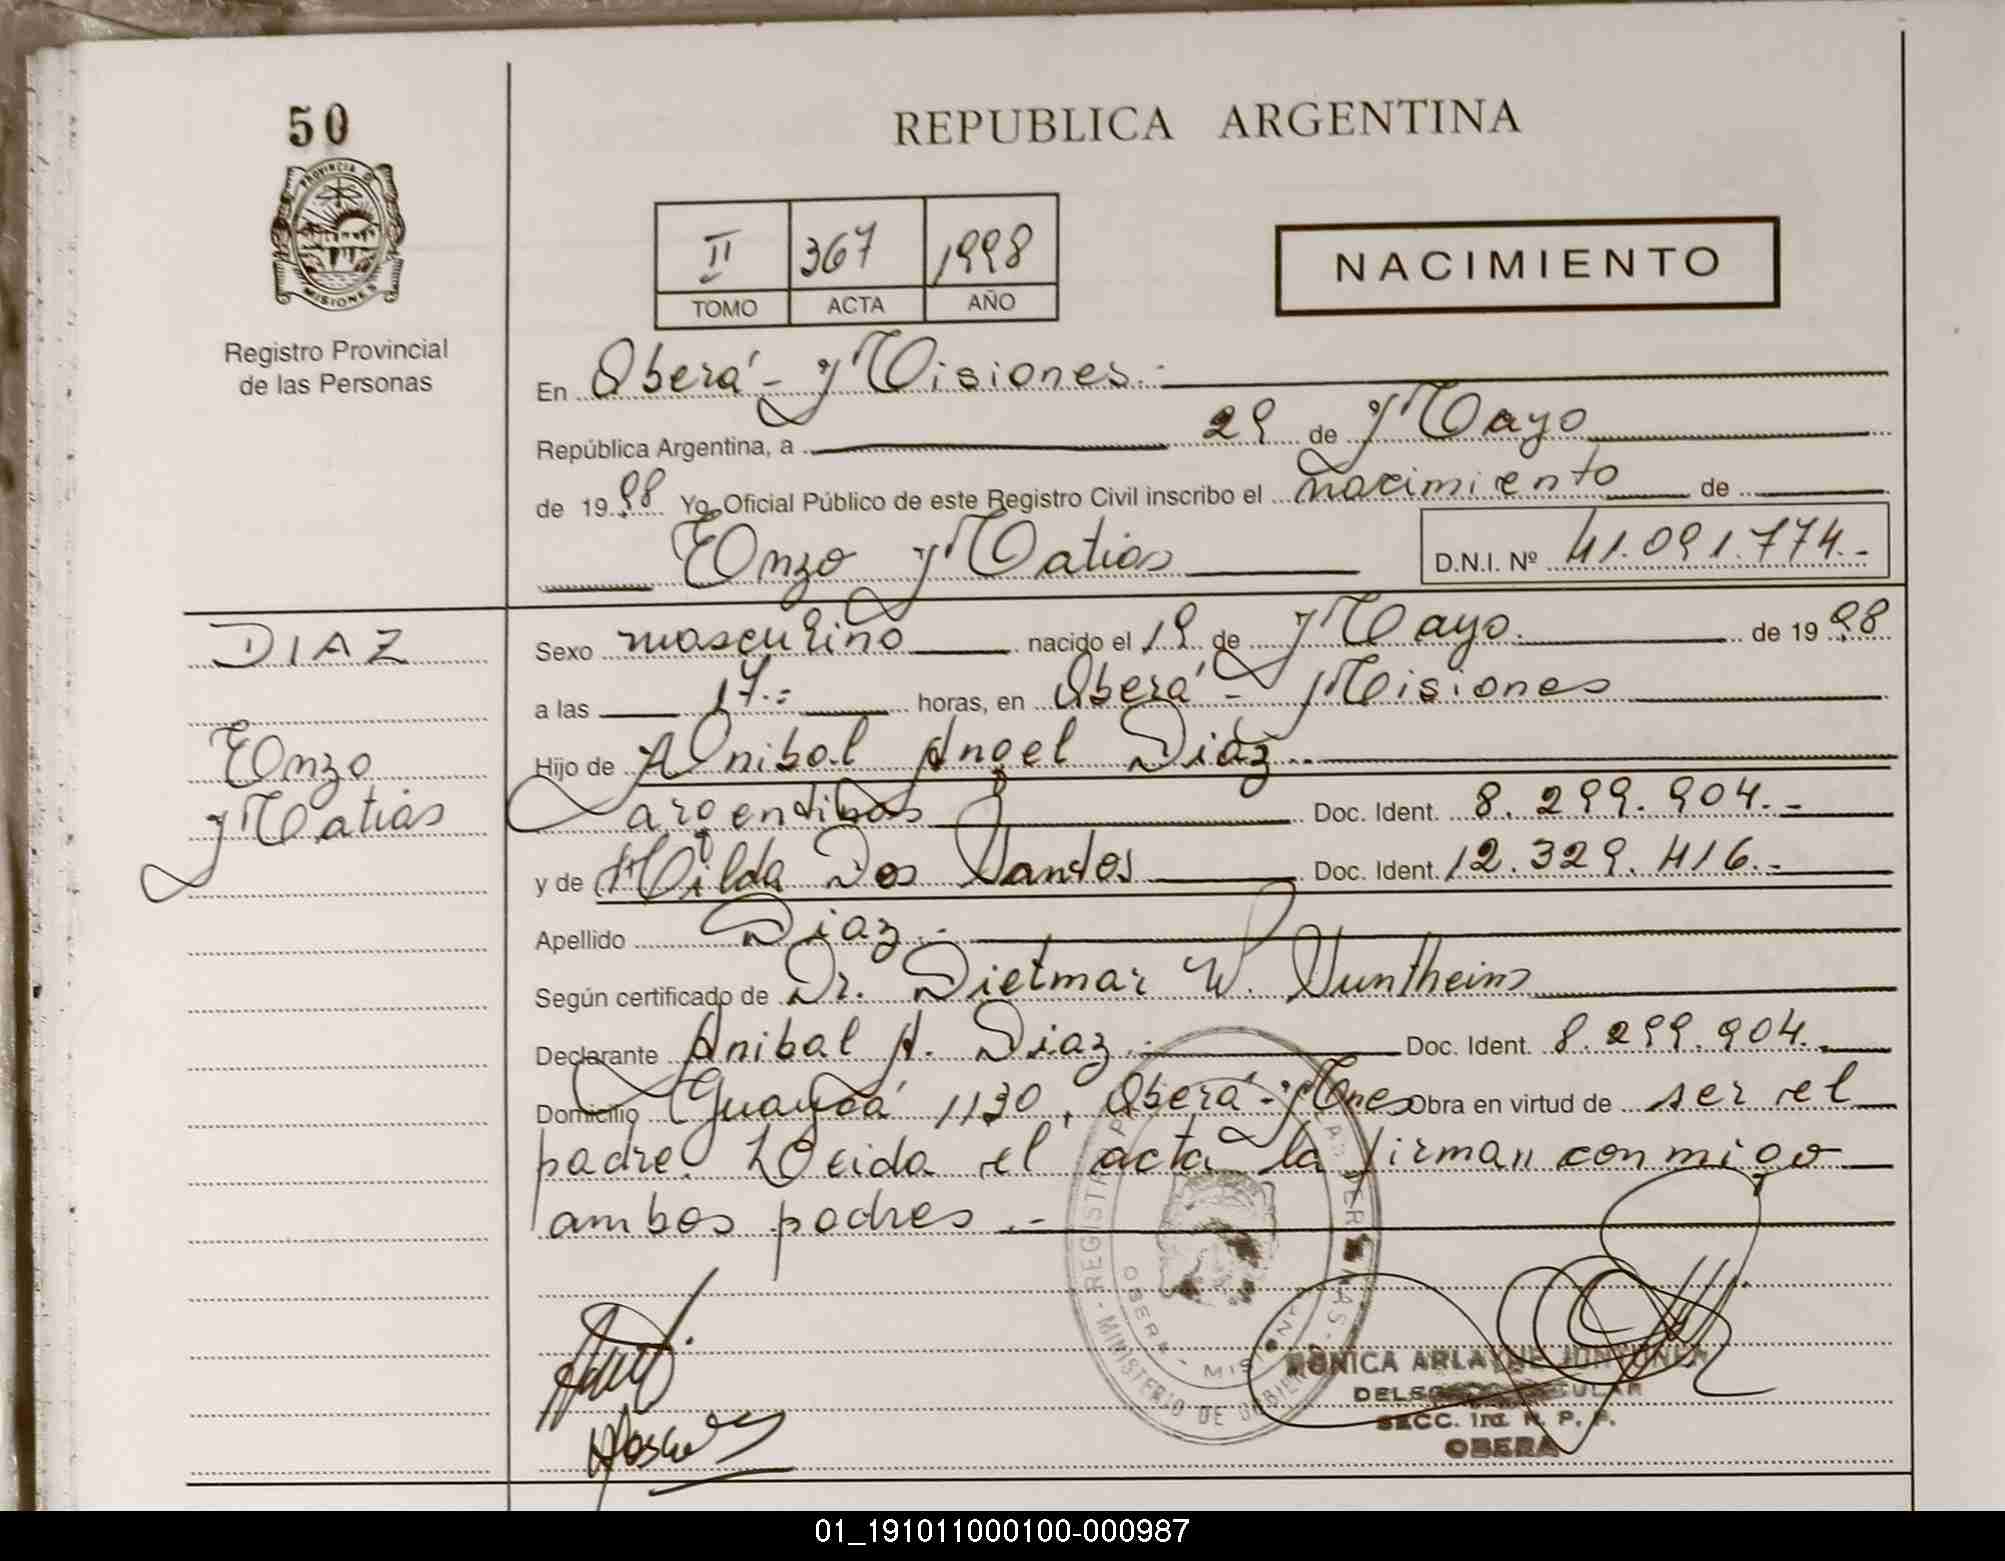 50
PROVINCIA D
MISIONES
Registro Provincial
de las Personas
REPUBLICA ARGENTINA
II 367 1998
TOMO ACTA AÑO
NACIMIENTO
En Oberá - Misiones.-
República Argentina, a 29 de Mayo
de 1998 Yo, Oficial Público de este Registro Civil inscribo el nacimiento de
Enzo Matias D.N.I. Nº 41.091.774.-
DIAZ
Enzo
Matias
Sexo masculino nacido el 19 de Mayo. de 1998
a las 17.- horas, en Oberá - Misiones
Hijo de Anibal Angel Diaz
argentinos Doc. Ident. 8.299.904.-
y de Hilda Dos Santos Doc. Ident. 12.329.416.-
Apellido Diaz.-
Según certificado de Dr. Dietmar W.
Declarante Anibal A. Diaz.- Doc. Ident. 8.299.904.
Domicilio 1130, Oberá - Mnes Obra en virtud de ser el
padre. Leida el acta la firman conmigo
ambos padres.-
REGISTR PERSONAS - MINISTERIO DE GOBIERN
OBERA - MISIONE
MONICA ARLAYNE
SECC. 1ra. R. P. P.
OBERA
01_191011000100-000987